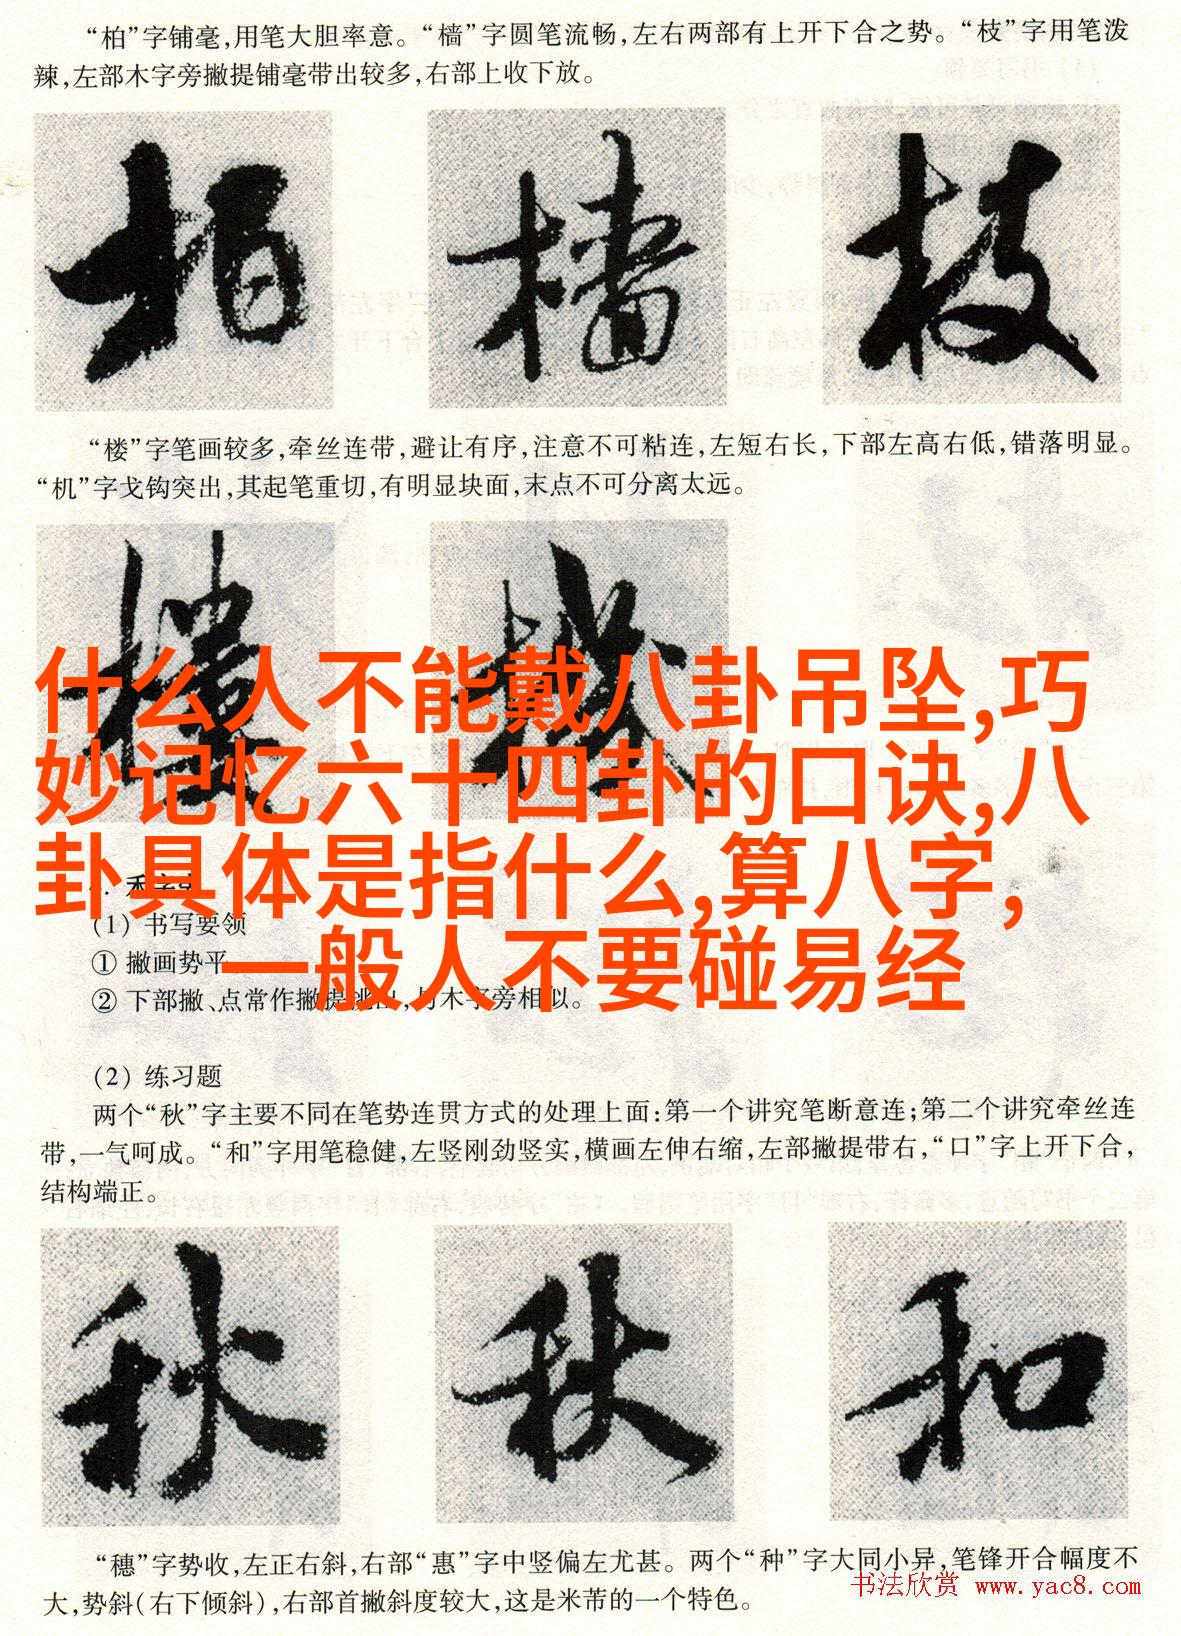 “柏”字铺毫,用笔大胆率意。“樯”字圆笔流畅,左右两部有上开下合之势。“枝”字用笔泼
辣,左部木字旁撇提铺毫带出较多,右部上收下放。
柏 樯 枝
“楼”字笔画较多,牵丝连带,避让有序,注意不可粘连,左短右长,下部左高右低,错落明显。
“机”字戈钩突出,其起笔重切,有明显块面,末点不可分离太远。
樓 機
什么人不能戴八卦吊坠,巧
妙记忆六十四卦的口诀,八
卦具体是指什么,算八字,
一般人不要碰易经
(1) 书写要领
① 撇画势平
② 下部撇、点常作撇提挑出,与木字旁相似。
(2) 练习题
两个“秋”字主要不同在笔势连贯方式的处理上面:第一个讲究笔断意连;第二个讲究牵丝连
带,一气呵成。“和”字用笔稳健,左竖刚劲竖实,横画左伸右缩,左部撇提带右,“口”字上开下合,
结构端正。
秋 秋 和
“穗”字势收,左正右斜,右部“惠”字中竖偏左尤甚。两个“种”字大同小异,笔锋开合幅度不
大,势斜(右下倾斜),右部首撇斜度较大,这是米芾的一个特色。
书法欣赏 www.yac8.com